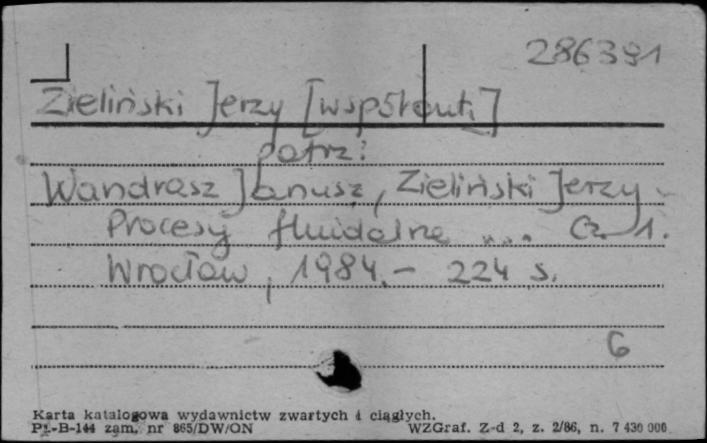 286391
Zieliński Jerzy [współaut.]
patrz:
Wandrasz Janusz, Zieliński Jerzy
Procesy fluidalne ... Cz. 1.
Wrocław, 1984.- 224 s.
6
Karta katalogowa wydawnictw zwartych i ciągłych.
Pu-B-144 zam. nr 865/DW/ON WZGraf. Z-d 2, z. 2/86, n. 7 430 000